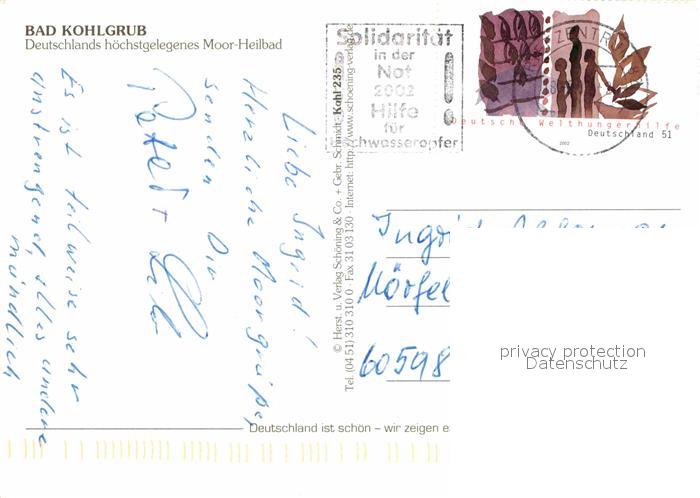 BAD KOHLGRUB
Deutschlands höchstgelegenes Moor-Heilbad
Solidarität
in der
Not
2002
Hilfe
für
Hochwasseropfer
ZENTR
Deutsche Welthungerhilfe
Deutschland 51
2002
Liebe Ingrid!
Herzliche Moorgrüße,
senden Dir
Es ist teilweise sehr
anstrengend, alles andere
mündlich
© Herst. u. Verlag Schöning & Co. + Gebr. Schmidt · Kohl 235 · www.schoening-verlag
Tel. (04 51) 310 310 0 · Fax 31 03 130 · Internet: http://
Ingri
Mörfel
60598
privacy protection
Datenschutz
Deutschland ist schön – wir zeigen e